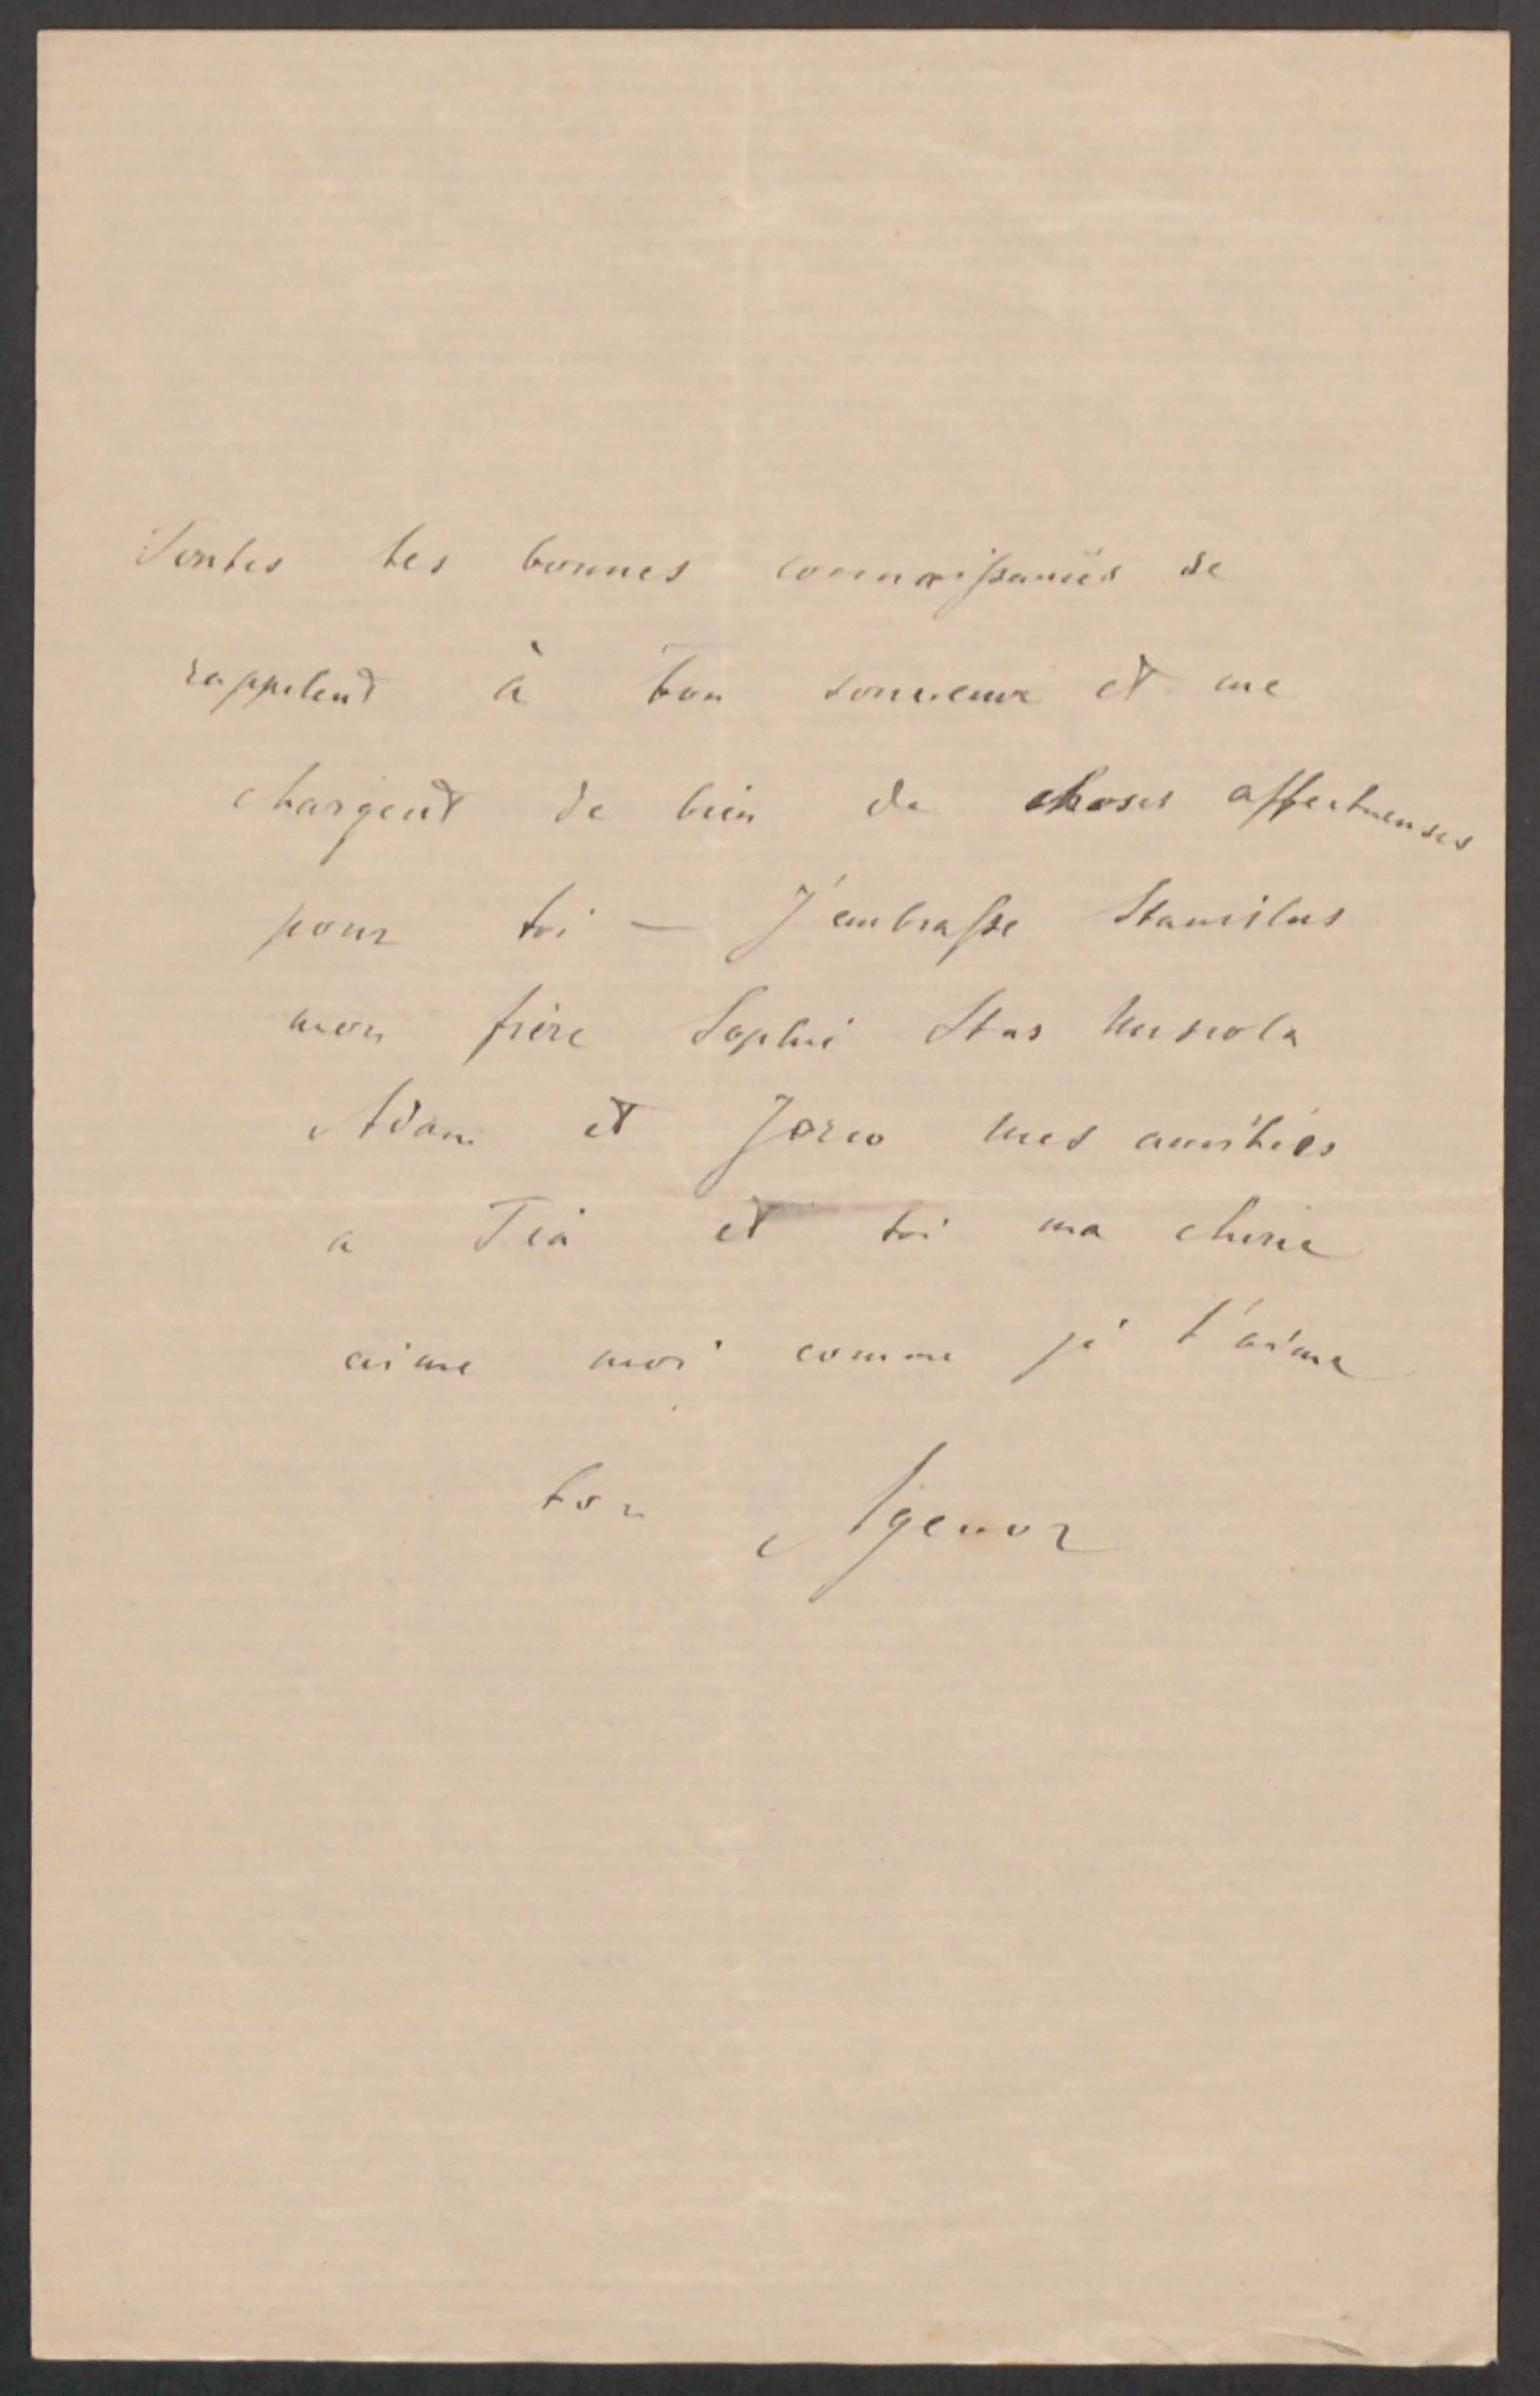 Toutes tes bonnes connaissances se
rappelent à ton souvenir et me
chargent de bien de choses affectueuses
pour toi — J'embrasse Stanislas
mon frère Sophie Stas
Adam et Jozio mes amitiés
a Tia et toi ma cherie
aime moi comme je t'aime
ton Agenor